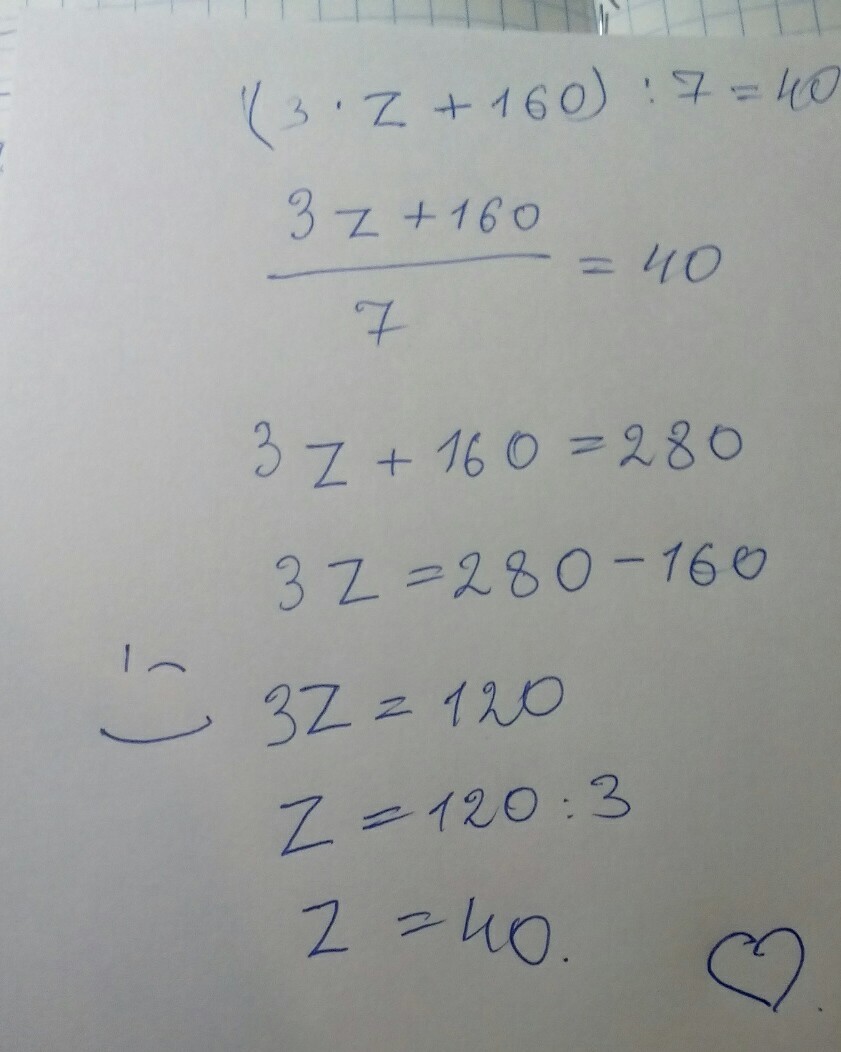 (3 · Z + 160) : 7 = 40
3Z + 160
7
= 40
3Z + 160 = 280
3Z = 280 - 160
3Z = 120
Z = 120 : 3
Z = 40.